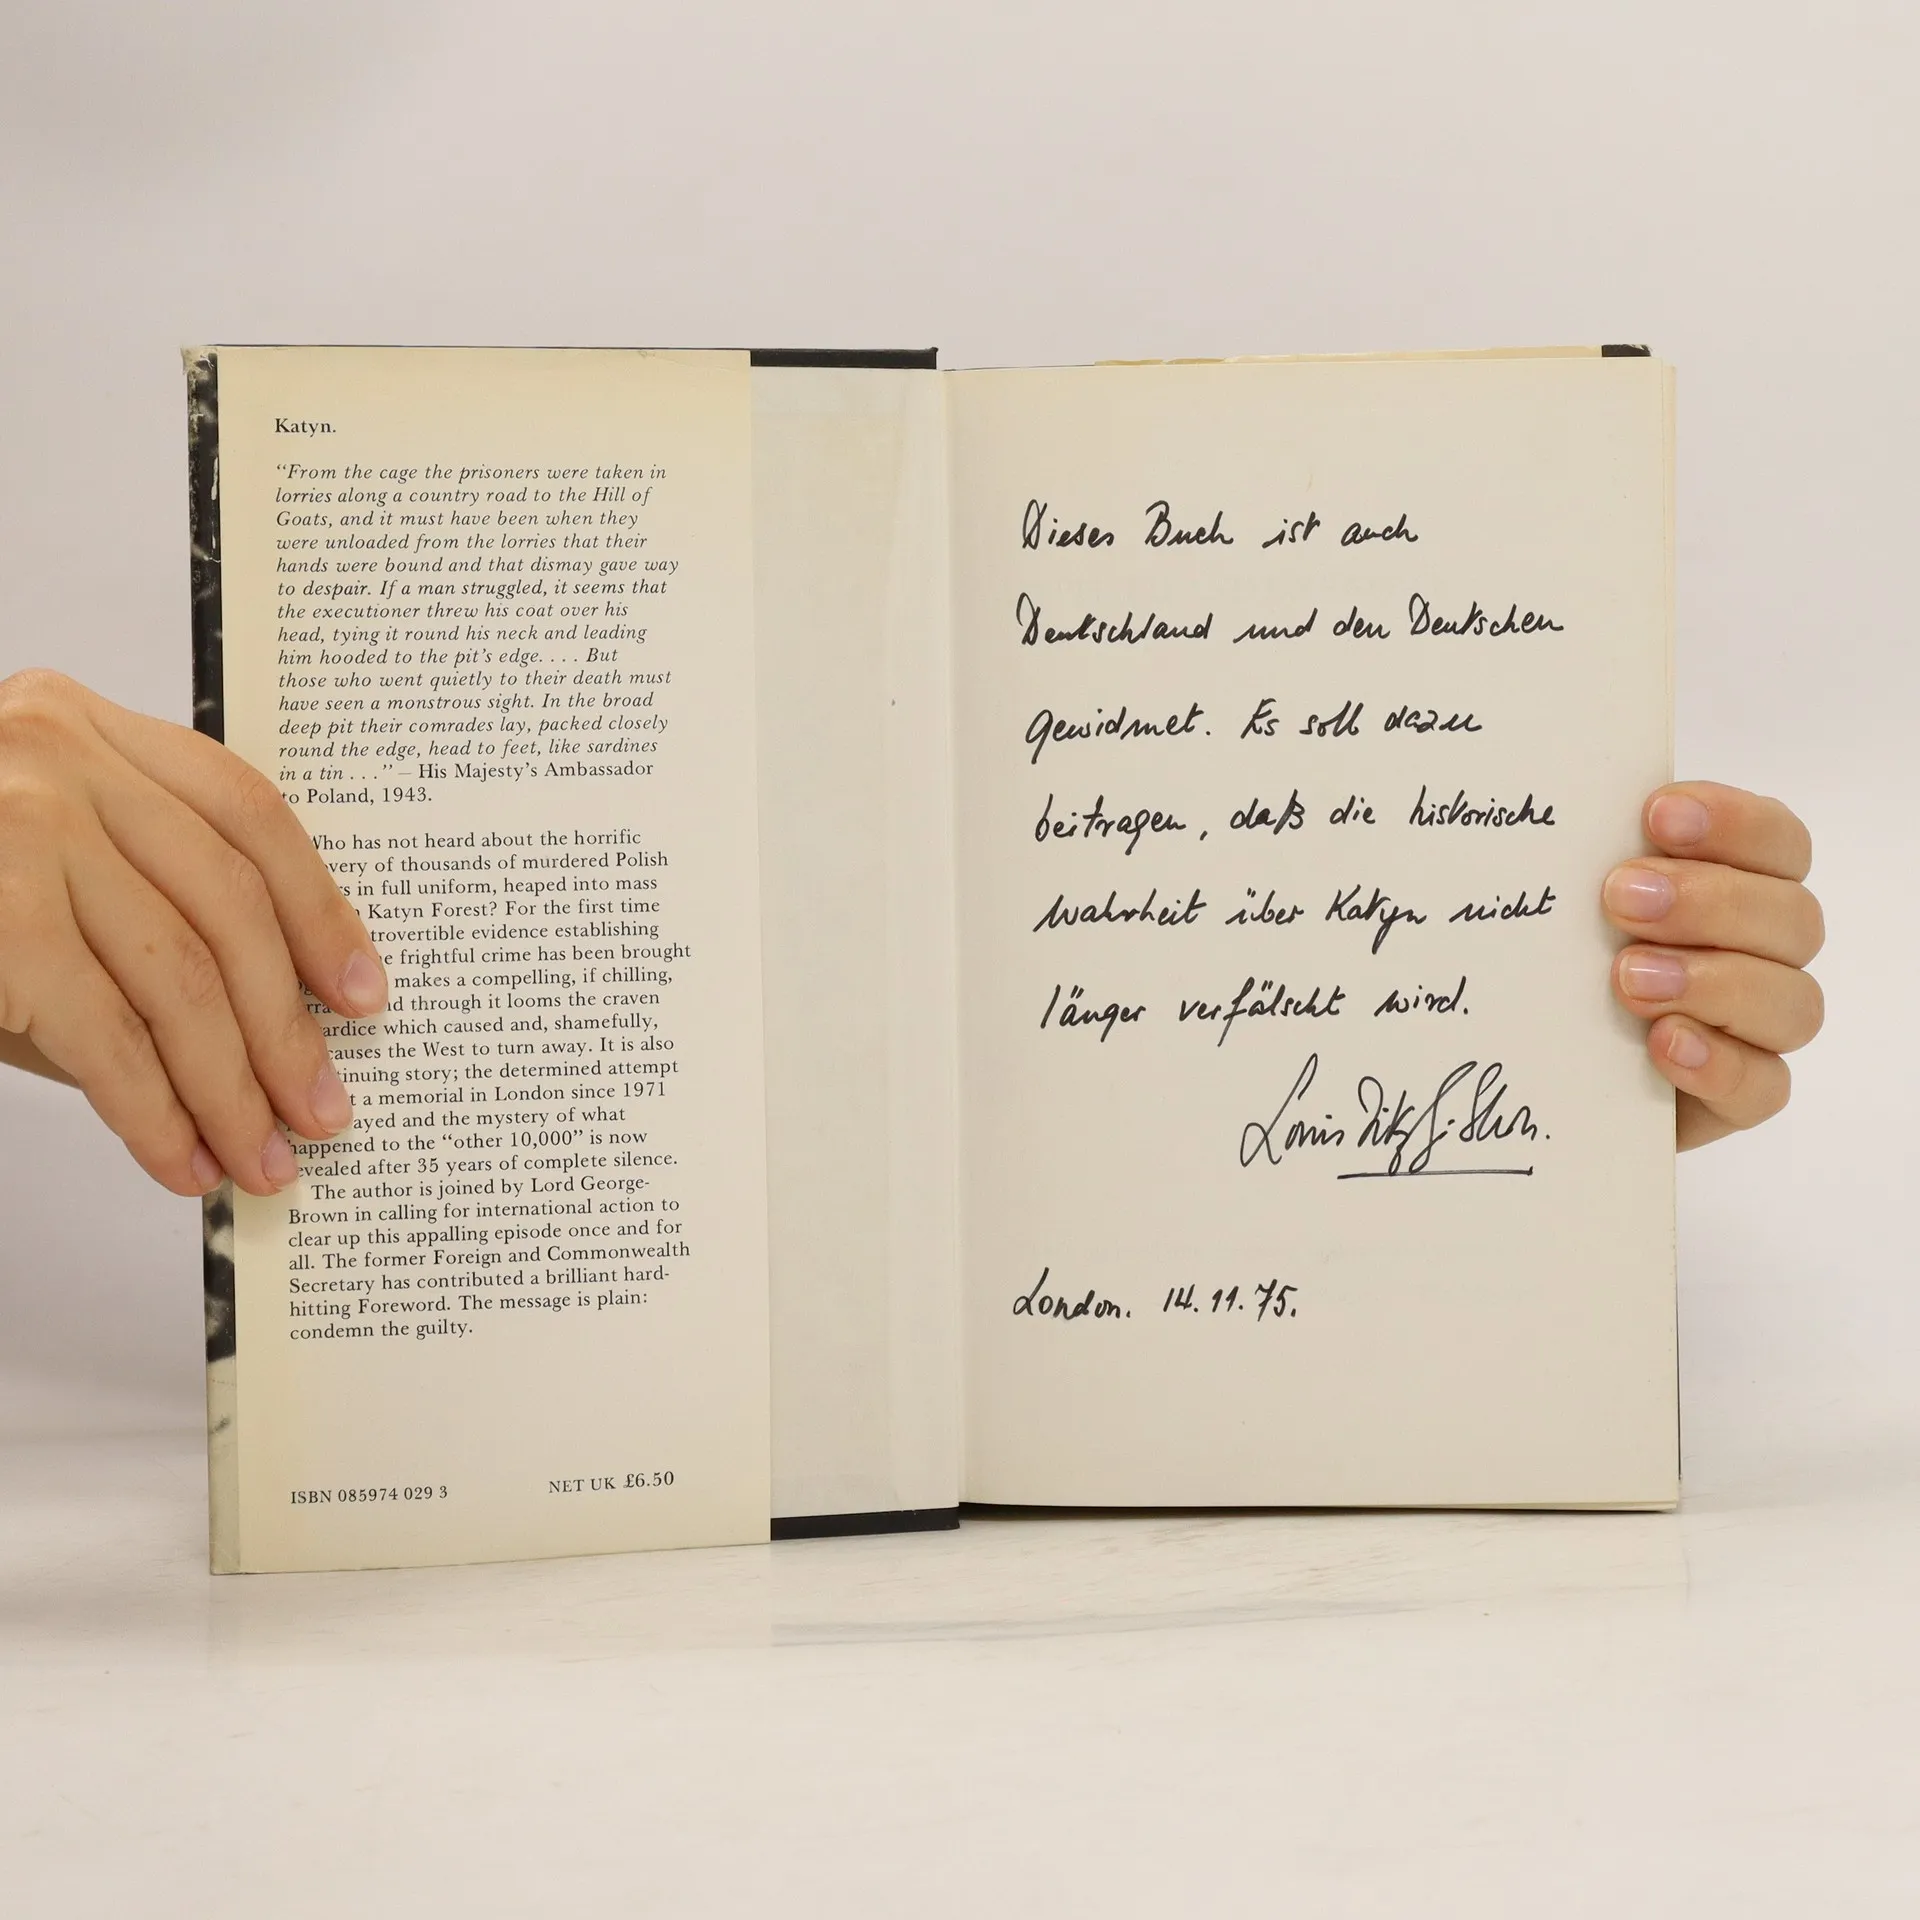 Katyn.
“From the cage the prisoners were taken in
lorries along a country road to the Hill of
Goats, and it must have been when they
were unloaded from the lorries that their
hands were bound and that dismay gave way
to despair. If a man struggled, it seems that
the executioner threw his coat over his
head, tying it round his neck and leading
him hooded to the pit’s edge. . . . But
those who went quietly to their death must
have seen a monstrous sight. In the broad
deep pit their comrades lay, packed closely
round the edge, head to feet, like sardines
in a tin . . .” – His Majesty’s Ambassador
to Poland, 1943.
Who has not heard about the horrific
of thousands of murdered Polish
in full uniform, heaped into mass
Katyn Forest? For the first time
evidence establishing
frightful crime has been brought
makes a compelling, if chilling,
through it looms the craven
which caused and, shamefully,
causes the West to turn away. It is also
story; the determined attempt
a memorial in London since 1971
and the mystery of what
happened to the “other 10,000” is now
revealed after 35 years of complete silence.
The author is joined by Lord George-
Brown in calling for international action to
clear up this appalling episode once and for
all. The former Foreign and Commonwealth
Secretary has contributed a brilliant hard-
hitting Foreword. The message is plain:
condemn the guilty.
ISBN 085974 029 3 NET UK £6.50
Dieses Buch ist auch
Deutschland und den Deutschen
gewidmet. Es soll dazu
beitragen, daß die historische
Wahrheit über Katyn nicht
länger verfälscht wird.
Louis FitzGibbon.
London. 14.11.75.